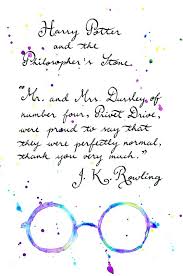 Harry Potter
and the
Philosopher's Stone
"Mr. and Mrs. Dursley, of
number four, Privet Drive,
were proud to say that
they were perfectly normal,
thank you very much."
J. K. Rowling